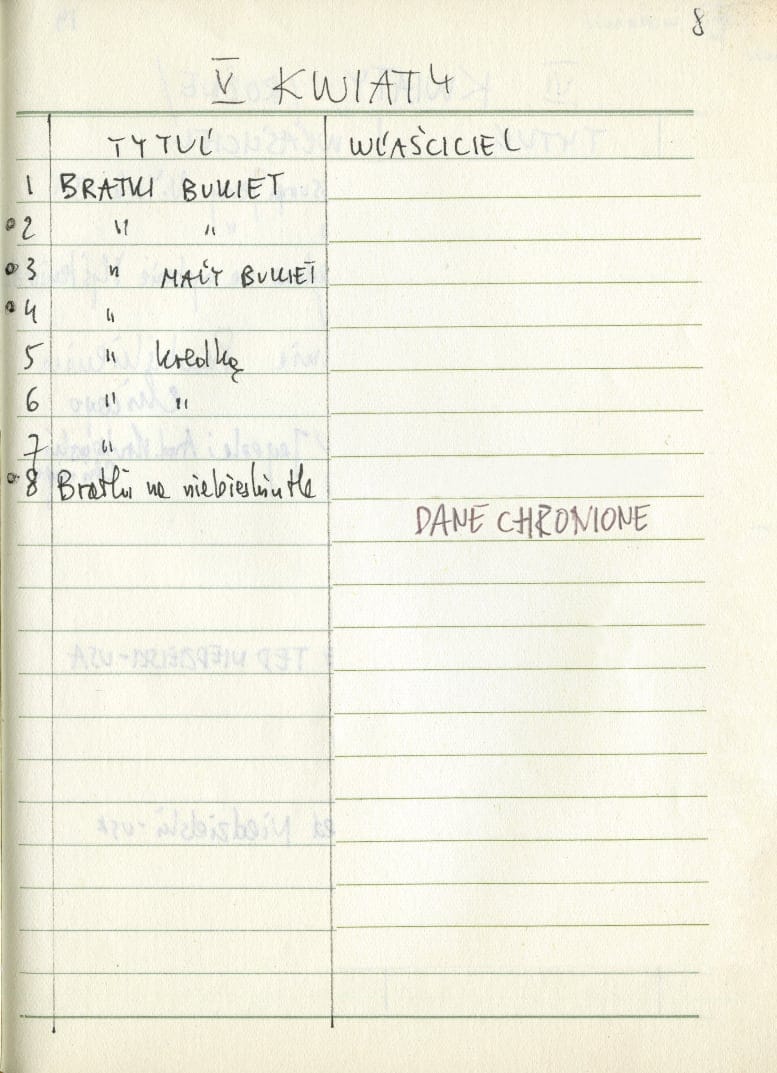 8
V KWIATY
TYTUŁ WŁAŚCICIEL
1 BRATKI BUKIET
2 " "
3 " MAŁY BUKIET
4 "
5 " kredką
6 " "
7 "
8 Bratki na niebieskim tle
DANE CHRONIONE